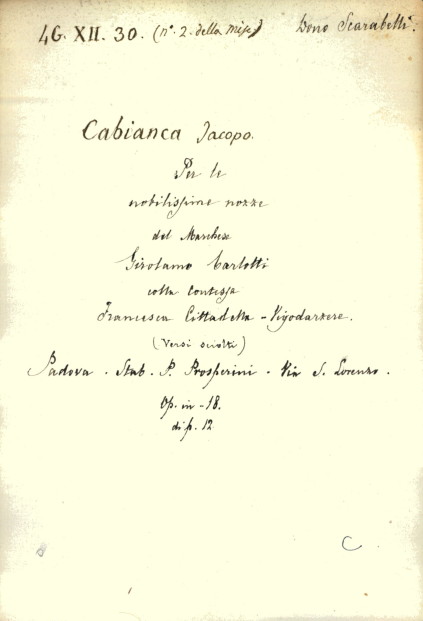 46. XII. 30. (n°. 2. della misc.) Dono Scarabelli.
Cabianca Jacopo.
Per le
nobilissime nozze
del Marchese
Girolamo Carlotti
colla Contessa
Francesca Cittadella - Vigodarzere.
(Versi sciolti)
Padova. Stab. P. Prosperini. Via S. Lorenzo.
Op. in - 18.
di p. 12
C